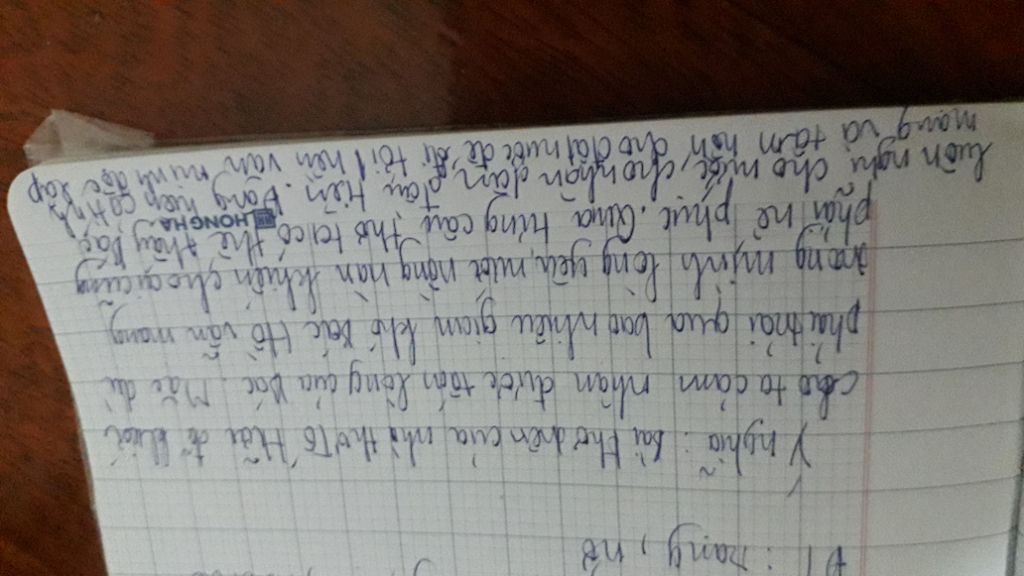 ĐT: mang, nở
Ý nghĩa: Bài thơ trên của nhà thơ Tố Hữu đã
cho ta cảm nhận được tấm lòng của Bác. Mặc dù
phải trải qua bao nhiêu gian khổ Bác Hồ vẫn mang
trong mình lòng yêu nước nồng nàn khiến cho ai cũng
phải nể phục. Qua từng câu thơ ta có thể thấy Bác
HONG HA
luôn nghĩ cho nước, cho nhân dân đầu tiên.
mạng và tâm hồn cho đất nước để đi tới nền văn minh độc lập